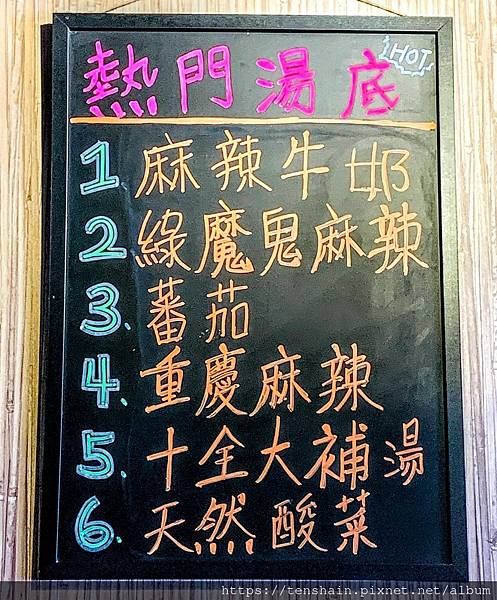 熱門湯底 HOT
1 麻辣牛奶
2 綠魔鬼麻辣
3. 蕃茄
4. 重慶麻辣
5. 十全大補湯
6. 天然酸菜
https://tenshain.pixnet.net/album